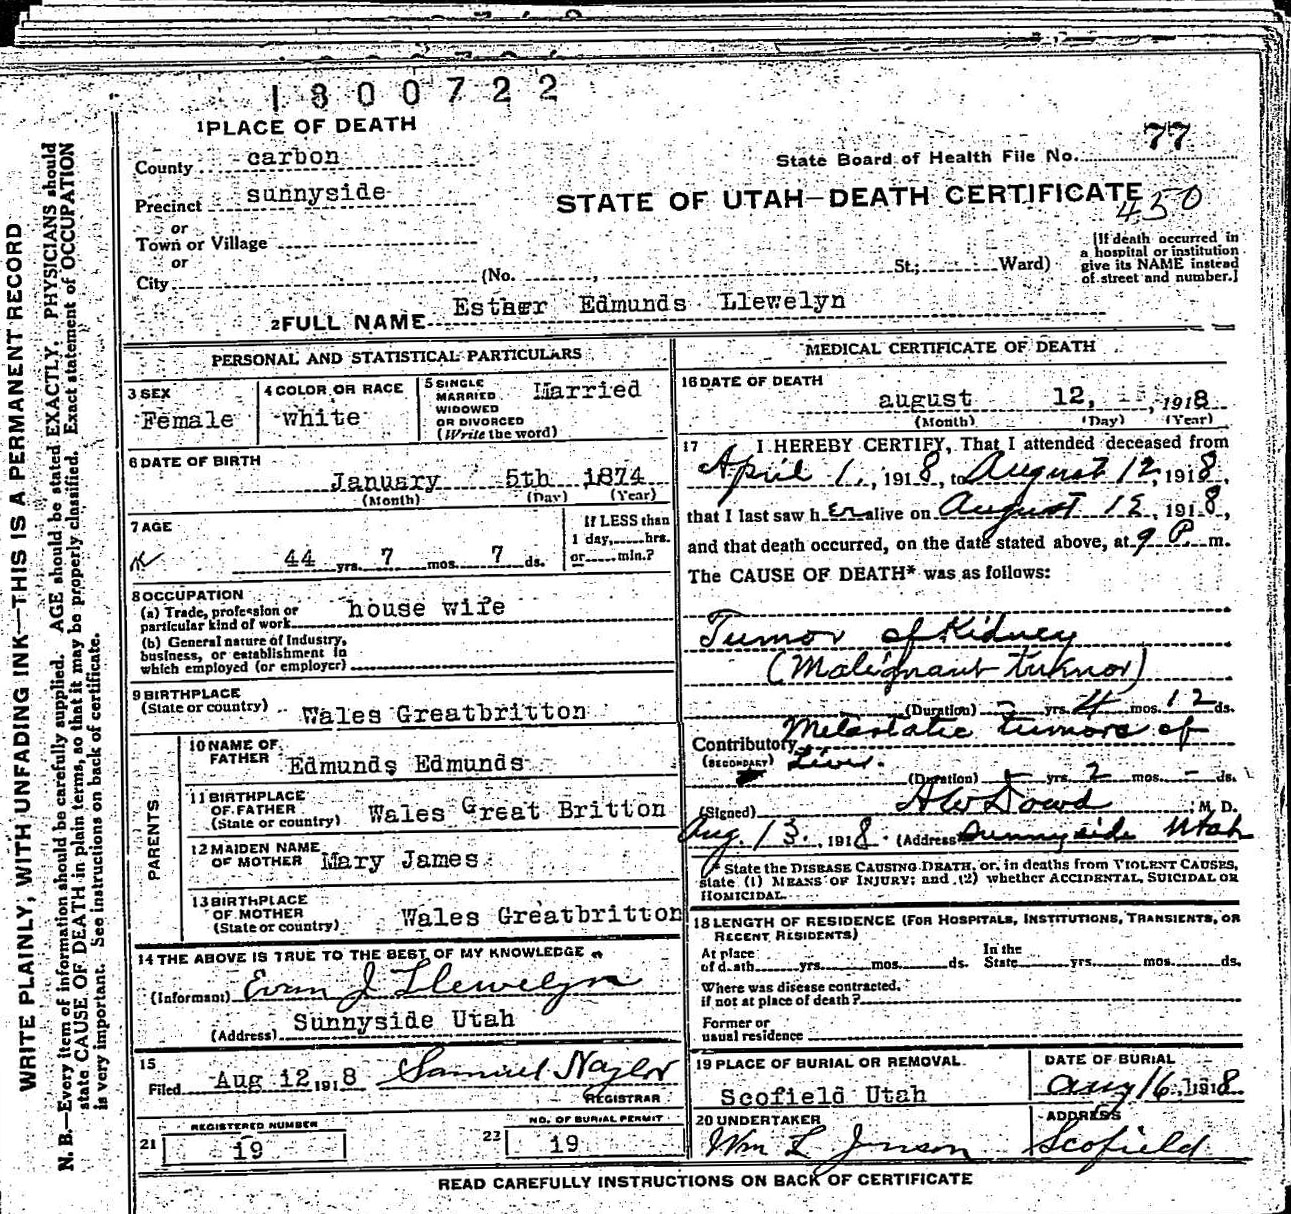 1300722
1 PLACE OF DEATH
County carbon
State Board of Health File No. 77
Precinct sunnyside
STATE OF UTAH—DEATH CERTIFICATE
450
or
Town or Village
or
City (No. , St.; Ward)
[If death occurred in a hospital or institution give its NAME instead of street and number.]
2 FULL NAME Esther Edmunds Llewelyn
PERSONAL AND STATISTICAL PARTICULARS
3 SEX
Female
4 COLOR OR RACE
white
5 SINGLE
MARRIED
WIDOWED
OR DIVORCED
(Write the word)
Married
6 DATE OF BIRTH
January 5th 1874
(Month) (Day) (Year)
7 AGE
44 yrs. 7 mos. 7 ds.
If LESS than
1 day, hrs.
or min.?
8 OCCUPATION
(a) Trade, profession or
particular kind of work house wife
(b) General nature of Industry,
business, or establishment in
which employed (or employer)
9 BIRTHPLACE
(State or country) Wales Greatbritton
PARENTS
10 NAME OF
FATHER Edmunds Edmunds
11 BIRTHPLACE
OF FATHER
(State or country) Wales Great Britton
12 MAIDEN NAME
OF MOTHER Mary James
13 BIRTHPLACE
OF MOTHER
(State or country) Wales Greatbritton
14 THE ABOVE IS TRUE TO THE BEST OF MY KNOWLEDGE
(Informant) Evan J Llewelyn
(Address) Sunnyside Utah
15
Filed Aug 12, 1918 Samuel Naylor
REGISTRAR
REGISTERED NUMBER
21 19
NO. OF BURIAL PERMIT
22 19
MEDICAL CERTIFICATE OF DEATH
16 DATE OF DEATH
august 12, 1918
(Month) (Day) (Year)
17 I HEREBY CERTIFY, That I attended deceased from
April 1, 1918, to August 12, 1918,
that I last saw her alive on August 12, 1918,
and that death occurred, on the date stated above, at 9 P. m.
The CAUSE OF DEATH* was as follows:
Tumor of Kidney
(Malignant tumor)
(Duration) - yrs. 4 mos. 12 ds.
Contributory Metastatic tumors of
(SECONDARY) Liver.
(Duration) - yrs. 2 mos. - ds.
(Signed) A W Dowd M. D.
Aug. 13, 1918 (Address) Sunnyside Utah
* State the DISEASE CAUSING DEATH, or, in deaths from VIOLENT CAUSES,
state (1) MEANS OF INJURY; and (2) whether ACCIDENTAL, SUICIDAL OR
HOMICIDAL.
18 LENGTH OF RESIDENCE (FOR HOSPITALS, INSTITUTIONS, TRANSIENTS, OR
RECENT RESIDENTS)
At place
of death yrs. mos. ds.
In the
State yrs. mos. ds.
Where was disease contracted,
if not at place of death?
Former or
usual residence
19 PLACE OF BURIAL OR REMOVAL
Scofield Utah
DATE OF BURIAL
Aug 16, 1918
20 UNDERTAKER
Wm L Jenson
ADDRESS
Scofield
READ CAREFULLY INSTRUCTIONS ON BACK OF CERTIFICATE
WRITE PLAINLY, WITH UNFADING INK—THIS IS A PERMANENT RECORD
N. B.—Every item of information should be carefully supplied. AGE should be stated EXACTLY. PHYSICIANS should
state CAUSE OF DEATH in plain terms, so that it may be properly classified. Exact statement of OCCUPATION
is very important. See instructions on back of certificate.